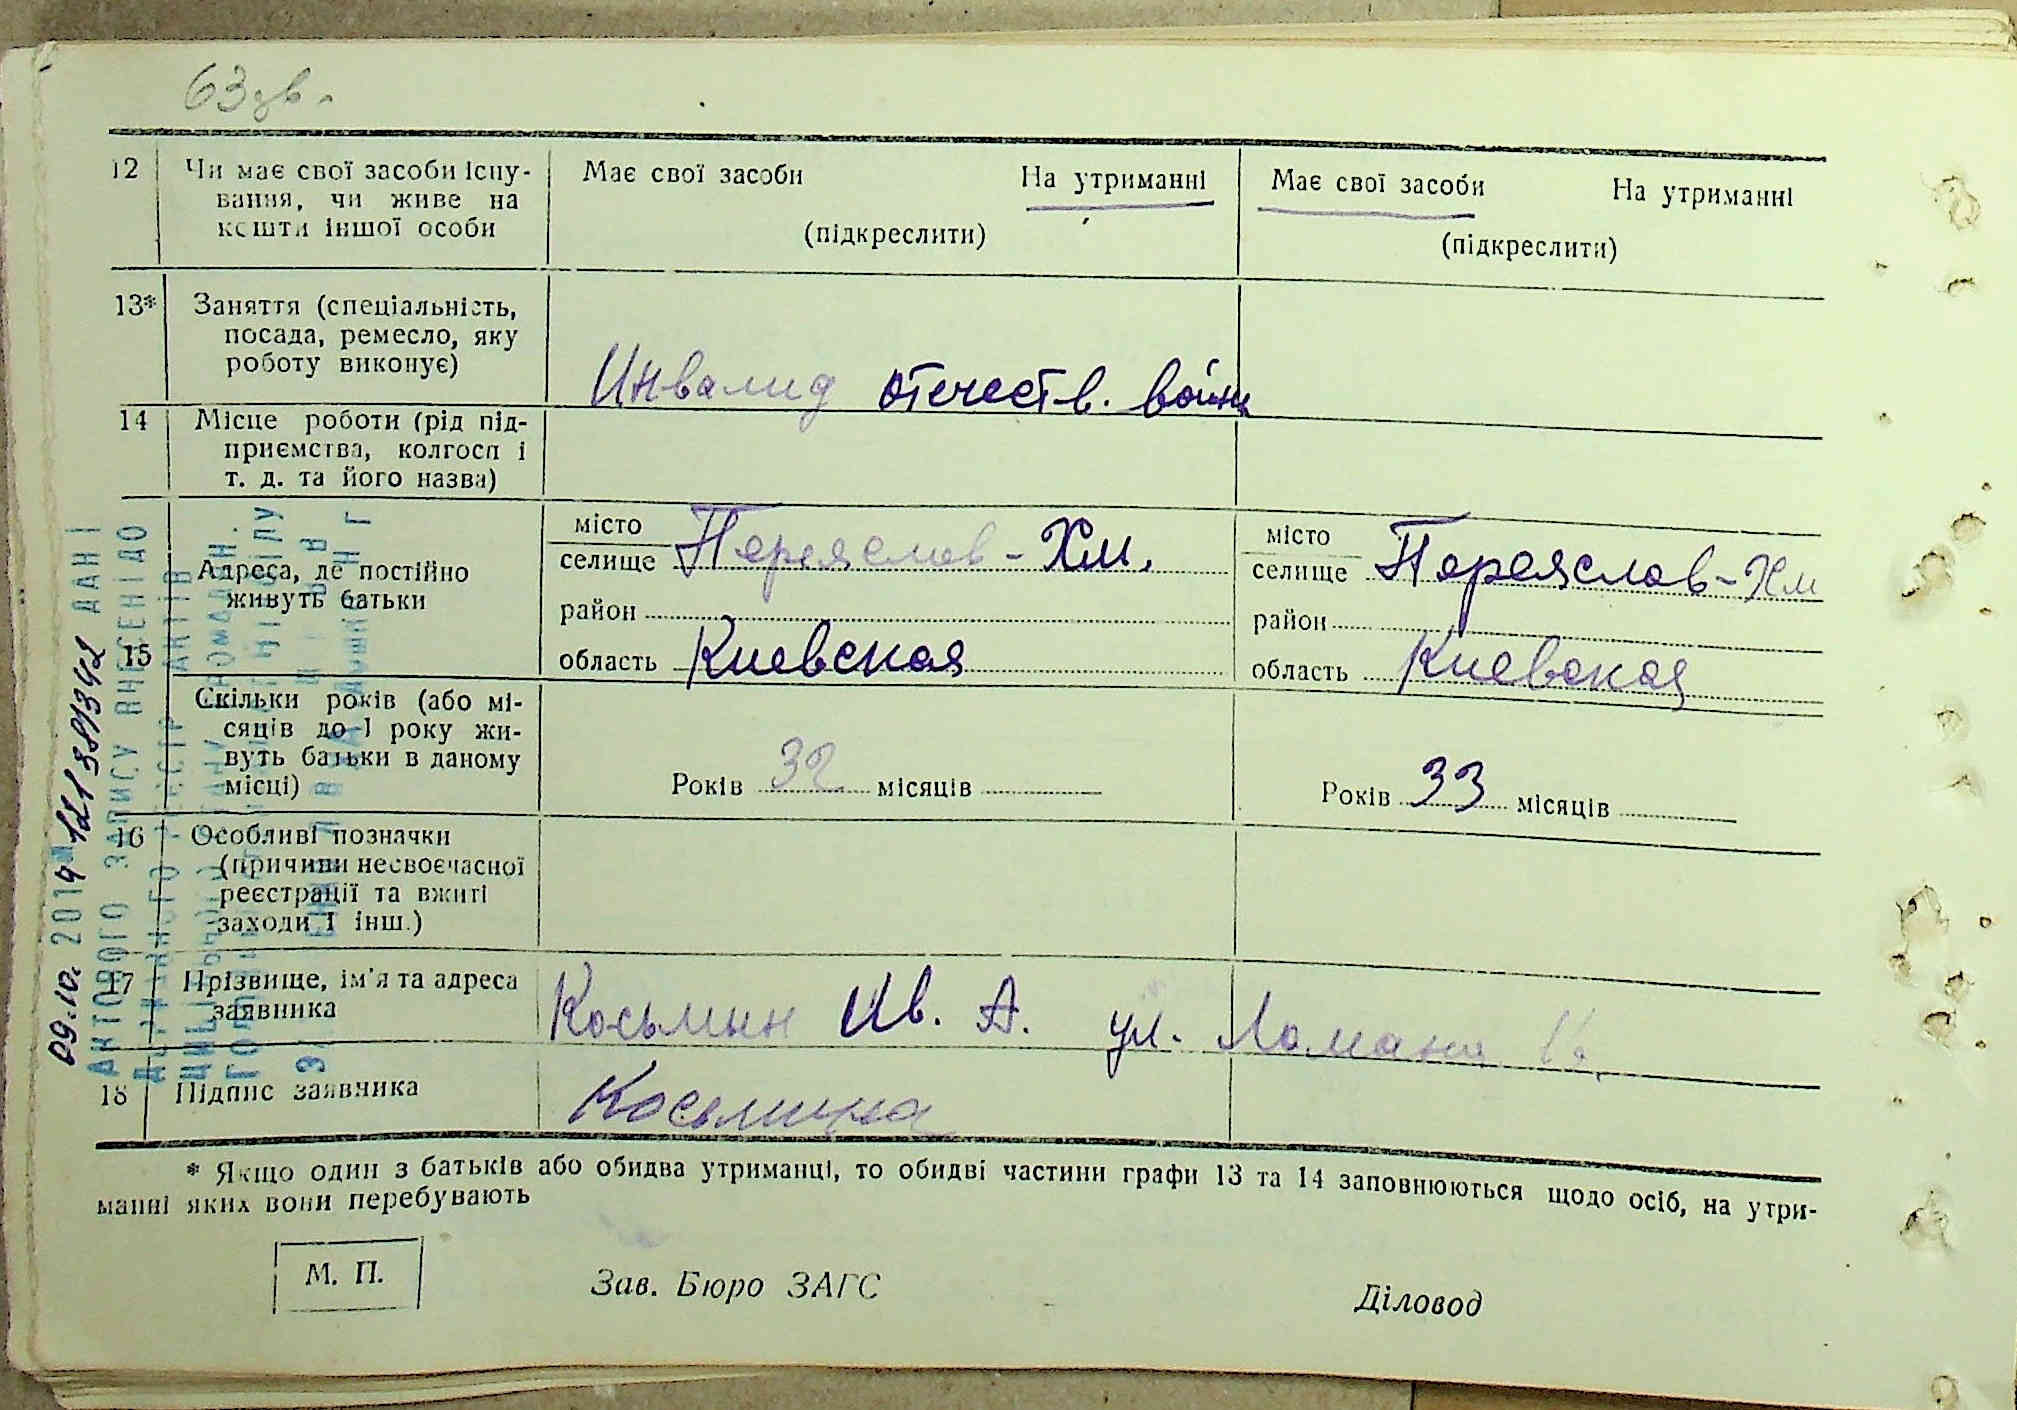 63 зв.
12 Чи має свої засоби існу- Має свої засоби На утриманні Має свої засоби На утриманні
вання, чи живе на
кошти іншої особи (підкреслити) (підкреслити)
13* Заняття (спеціальність,
посада, ремесло, яку
роботу виконує) Инвалид отечеств. войны
14 Місце роботи (рід під-
приємства, колгосп і
т. д. та його назва)
15 Адреса, де постійно
живуть батьки
місто
селище Переяслов-Хм.
район
область Киевская
місто
селище Переяслов-Хм
район
область Киевская
Скільки років (або мі-
сяців до 1 року жи-
вуть батьки в даному
місці) Років 32 місяців Років 33 місяців
16 Особливі позначки
(причини несвоєчасної
реєстрації та вжиті
заходи і інш.)
17 Прізвище, ім'я та адреса
заявника Косьмин Ив. А. ул. Ломаная
18 Підпис заявника Косьмина
* Якщо один з батьків або обидва утриманці, то обидві частини графи 13 та 14 заповнюються щодо осіб, на утри-
манні яких вони перебувають
М. П. Зав. Бюро ЗАГС Діловод
09.10. 2014 ДАНІ
АКТОВОГО ЗАПИСУ ВНЕСЕНІ ДО